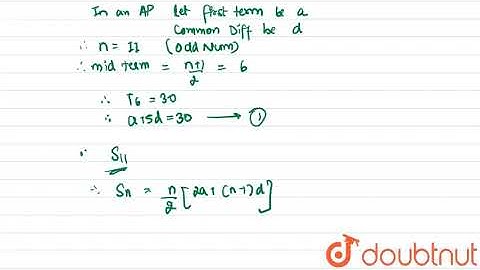 In an AP let first term be a
Common Diff be d
∴ n = 11 (odd Num)
∴ mid term = n+1/2 = 6
∴ T6 = 30
∴ a+5d = 30 → ①
∵ S11
∴ Sn = n/2 [2a + (n-1)d]
doubtnut